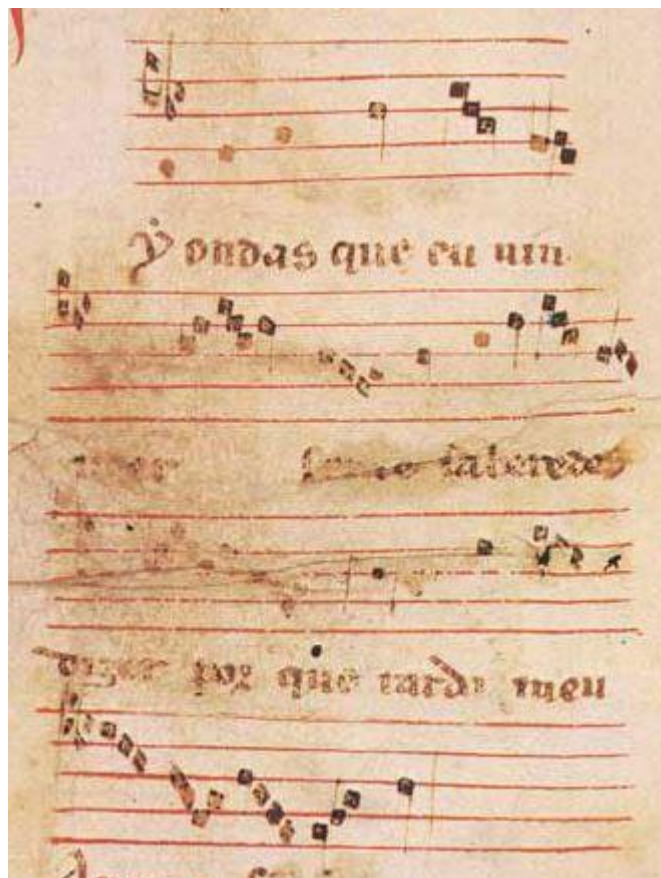 Y ondas que eu uin
ueer saberedes
dizer por que tarda meu